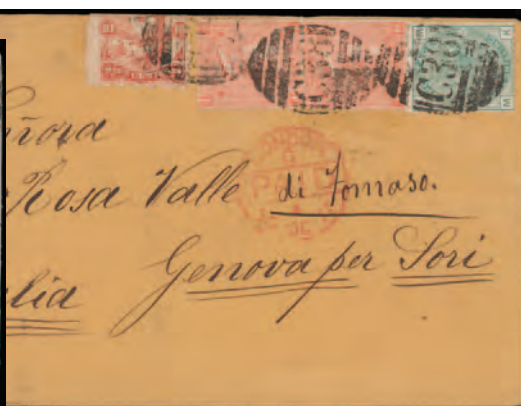 C38
C38
ñora
Rosa Valle di Tomaso.
PAID
Genova per Sori
lia